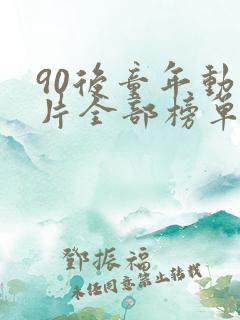 90後童年動
片全部榜單
鄧振福
未任同意禁止转载